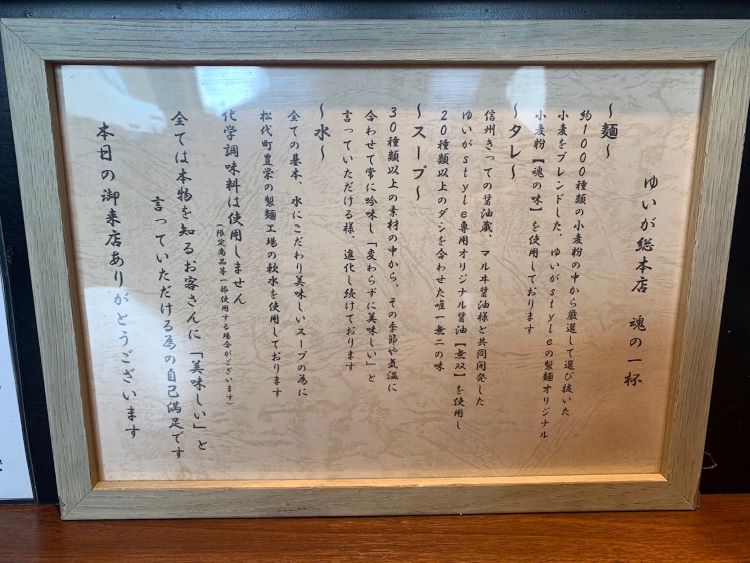 ゆいが総本店　魂の一杯
～麺～
約1000種類の小麦粉の中から厳選して選び抜いた
小麦をブレンドした、ゆいがstyleの製麺オリジナル
小麦粉【魂の味】を使用しております
～タレ～
信州きっての醤油蔵、マルヰ醤油様と共同開発した
ゆいがstyle専用オリジナル醤油【無双】を使用し
20種類以上のダシを合わせた唯一無二の味
～スープ～
30種類以上の素材の中から、その季節や気温に
合わせて常に吟味し「変わらずに美味しい」と
言っていただける様、進化し続けております
～水～
全ての基本、水にこだわり美味しいスープの為に
松代町豊栄の製麺工場の軟水を使用しております
化学調味料は使用しません
(限定商品等一部使用する場合がございます)
全ては本物を知るお客さんに「美味しい」と
言っていただける為の自己満足です
本日の御来店ありがとうございます